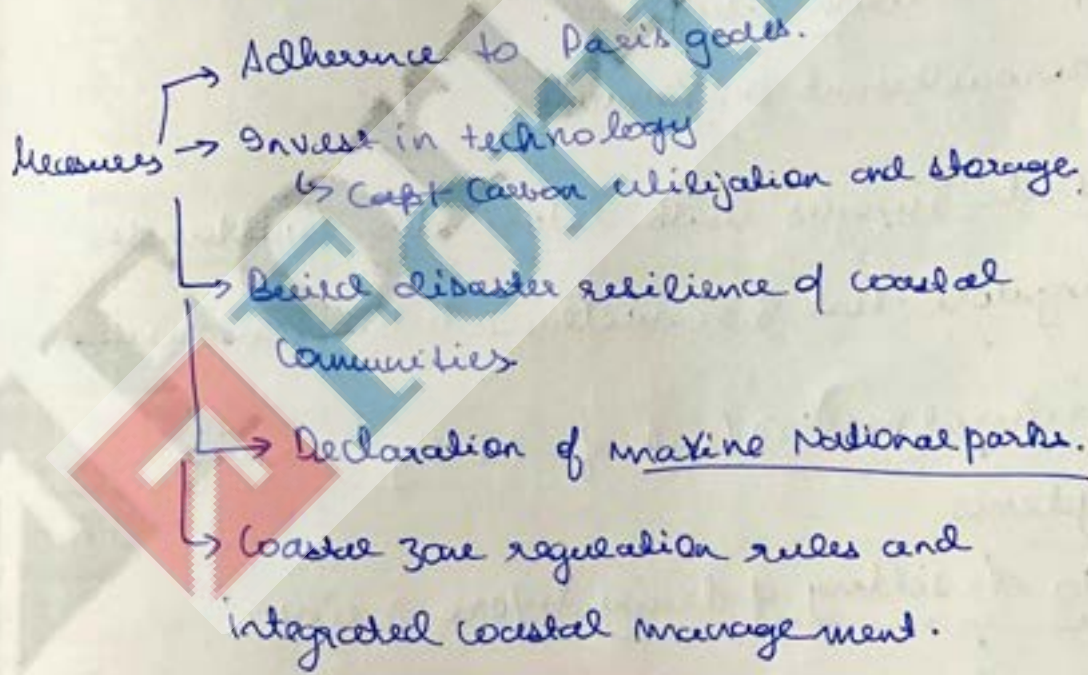 Adherence to Paris goals.
Measures → Invest in technology
↳ Carbon utilization and storage.
Build disaster resilience of coastal
Communities
Declaration of marine National parks.
Coastal zone regulation rules and
integrated coastal management.
Forum